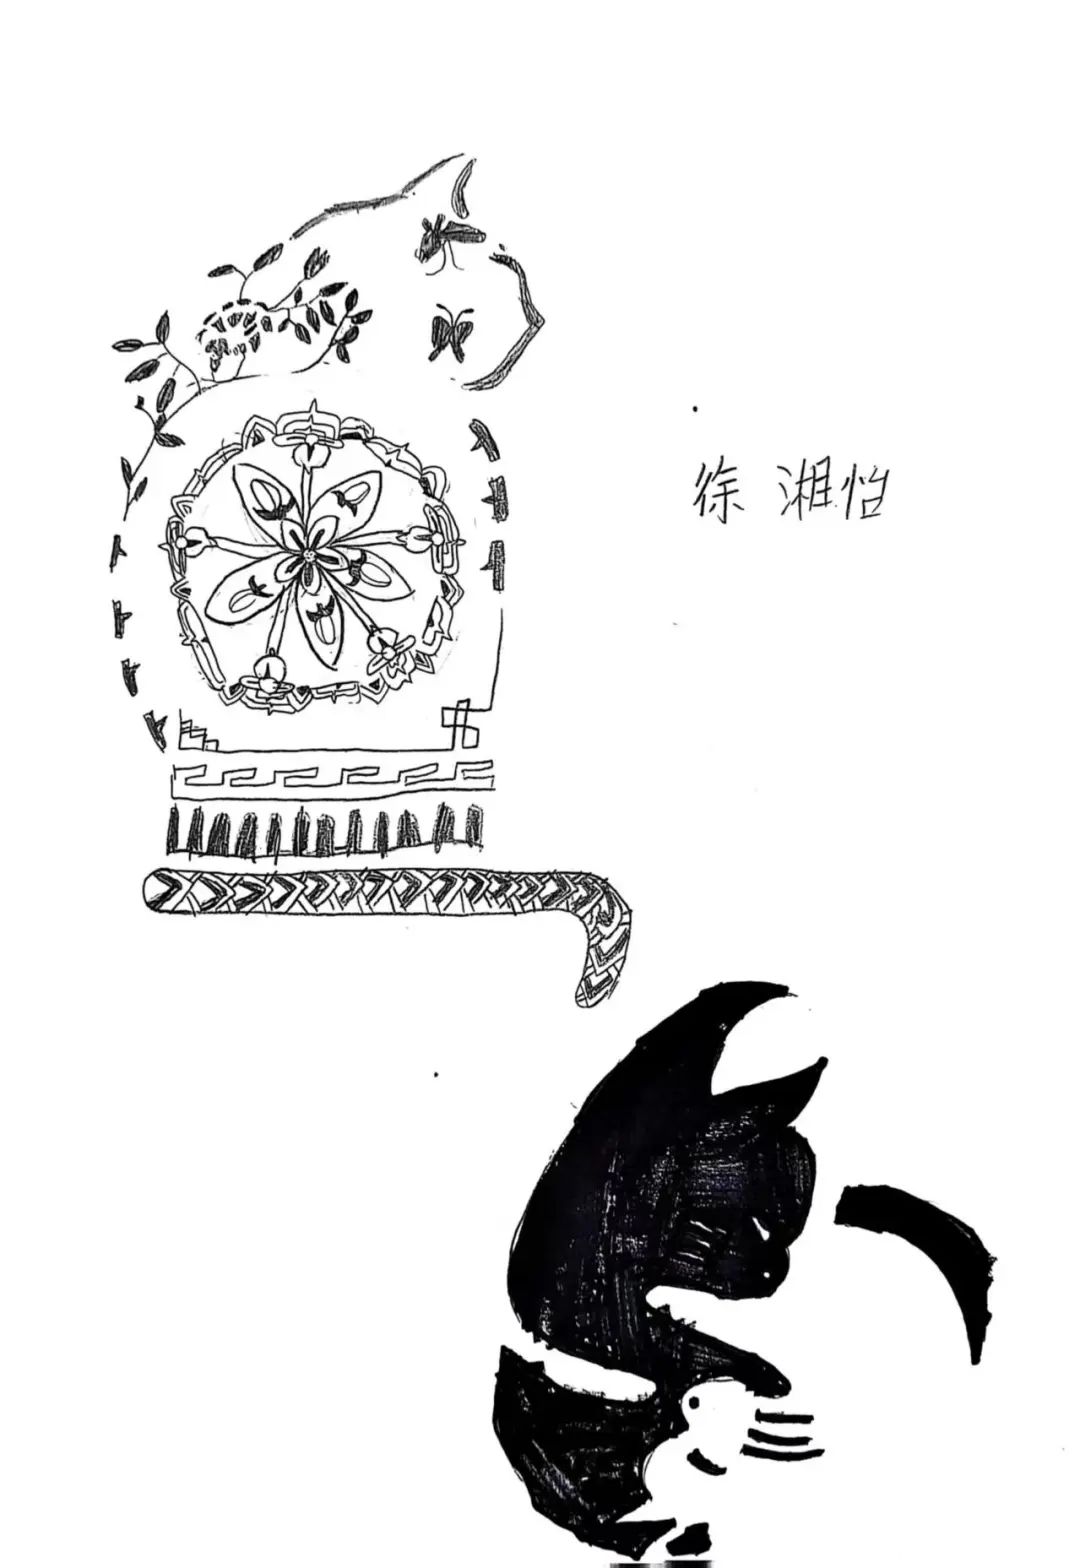 徐湘怡